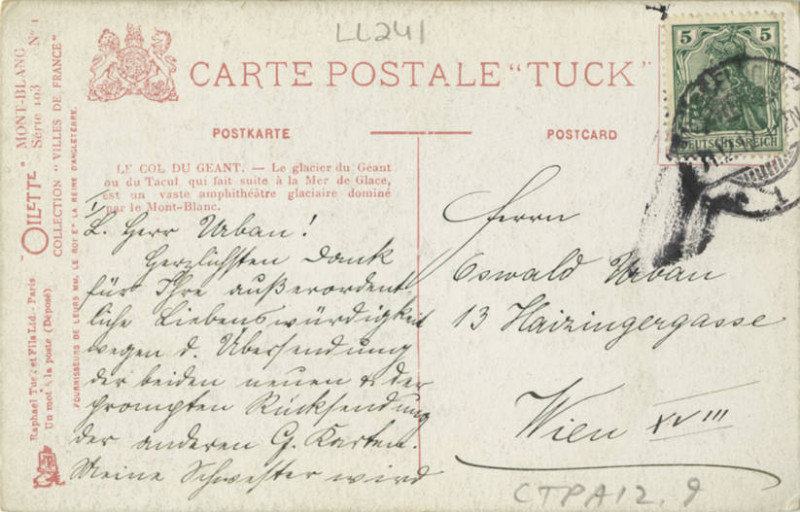 LL241
CARTE POSTALE "TUCK"
POSTKARTE
POSTCARD
5 5
DEUTSCHES REICH
1
LE COL DU GEANT. — Le glacier du Géant
ou du Tacul qui fait suite à la Mer de Glace,
est un vaste amphithéâtre glaciaire dominé
par le Mont-Blanc.
1/
L. Herr Urban!
Herzlichsten Dank
für Ihre außerordent-
liche Liebenswürdigkeit
wegen d. Übersendung
der beiden neuen & der
prompten Rücksendung
der anderen G. Karten.
Meine Schwester wird
Herrn
Oswald Urban
13 Haizingergasse
Wien XVIII
CTPA12.9
"OILETTE" MONT-BLANC
Série 103 No 1
COLLECTION "VILLES DE FRANCE"
FOURNISSEURS DE LEURS MM. LE ROI ET LA REINE D'ANGLETERRE.
Raphael Tuck et Fils Ltd.- Paris
Un mot à la poste (Déposé)